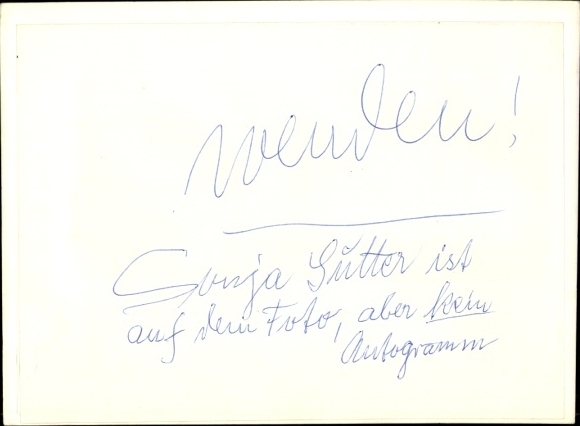 wenden!
Sonja Sutter ist
auf dem Foto, aber kein
Autogramm